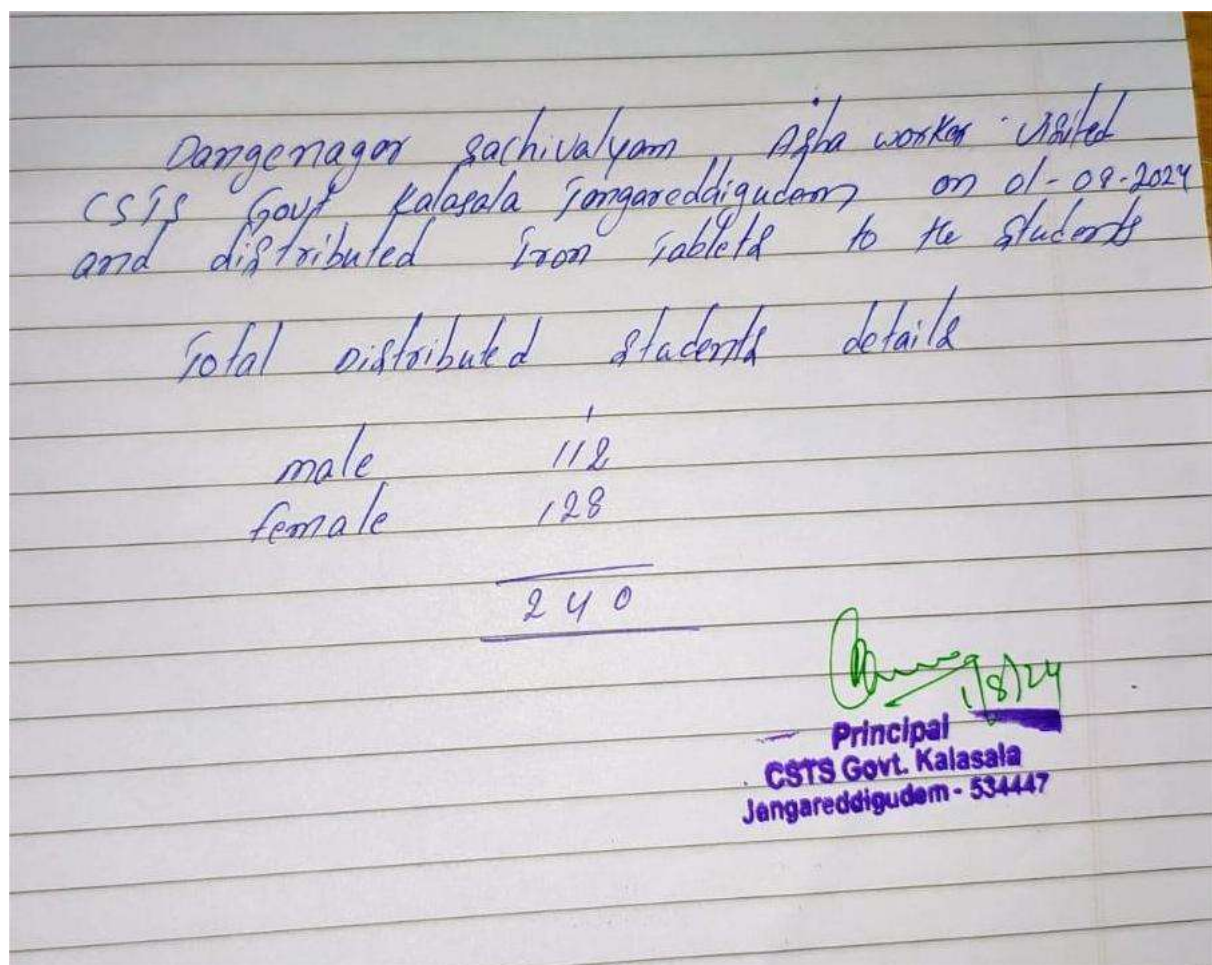 Dangenagar Sachivalyam Asha worker visited
CSTS Govt Kalasala Jangareddigudem on 01-08-2024
and distributed Iron Tablets to the Students
Total Distributed Students details
male 112
female 128
240
1/8/24
Principal
CSTS Govt. Kalasala
Jangareddigudem - 534447